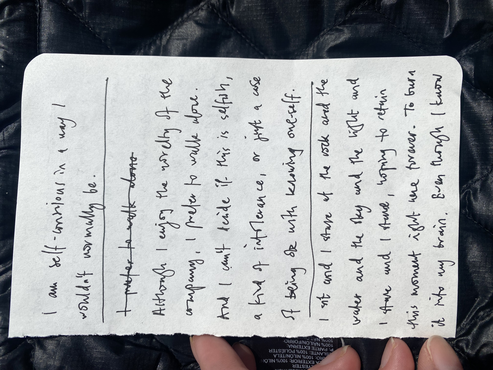 I am self-conscious in a way I
wouldn't normally be.
I prefer to walk alone.
Although I enjoy the novelty of the
company, I prefer to walk alone.
And I can't decide if this is selfish,
a kind of intolerance, or just a case
of being ok with knowing one-self.
I sit and I stare at the rock and the
water and the sky and the light and
I stare and I stare, hoping to retain
this moment right here forever. To burn
it into my brain. Even though I know